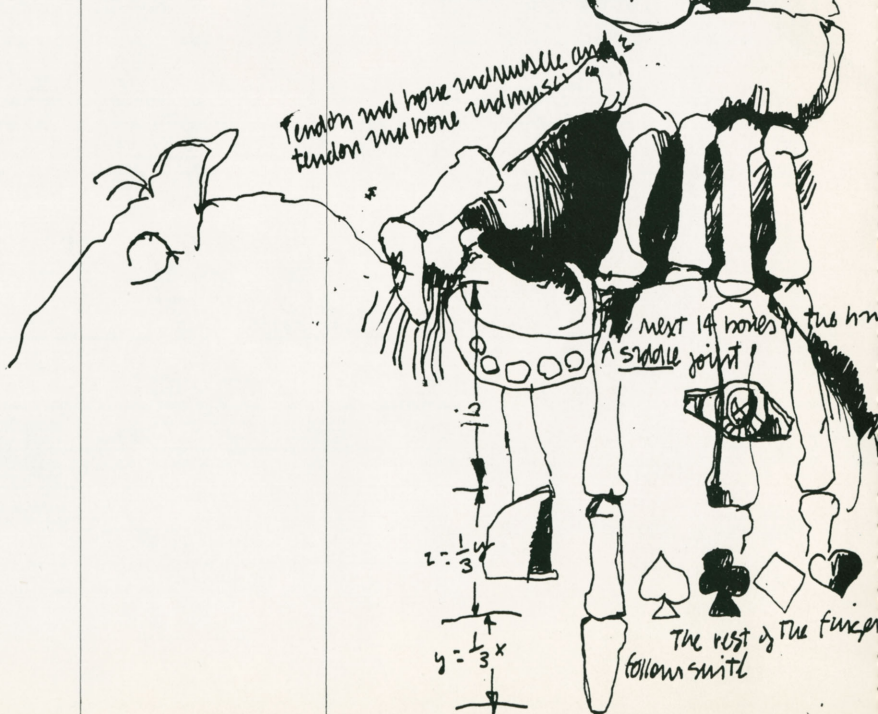 Tendon and bone and muscle and
tendon and bone and muscl
next 14 bones of the
A siddle joint
z = 1/3 y
y = 1/3 x
The rest of The finger
follow suitl